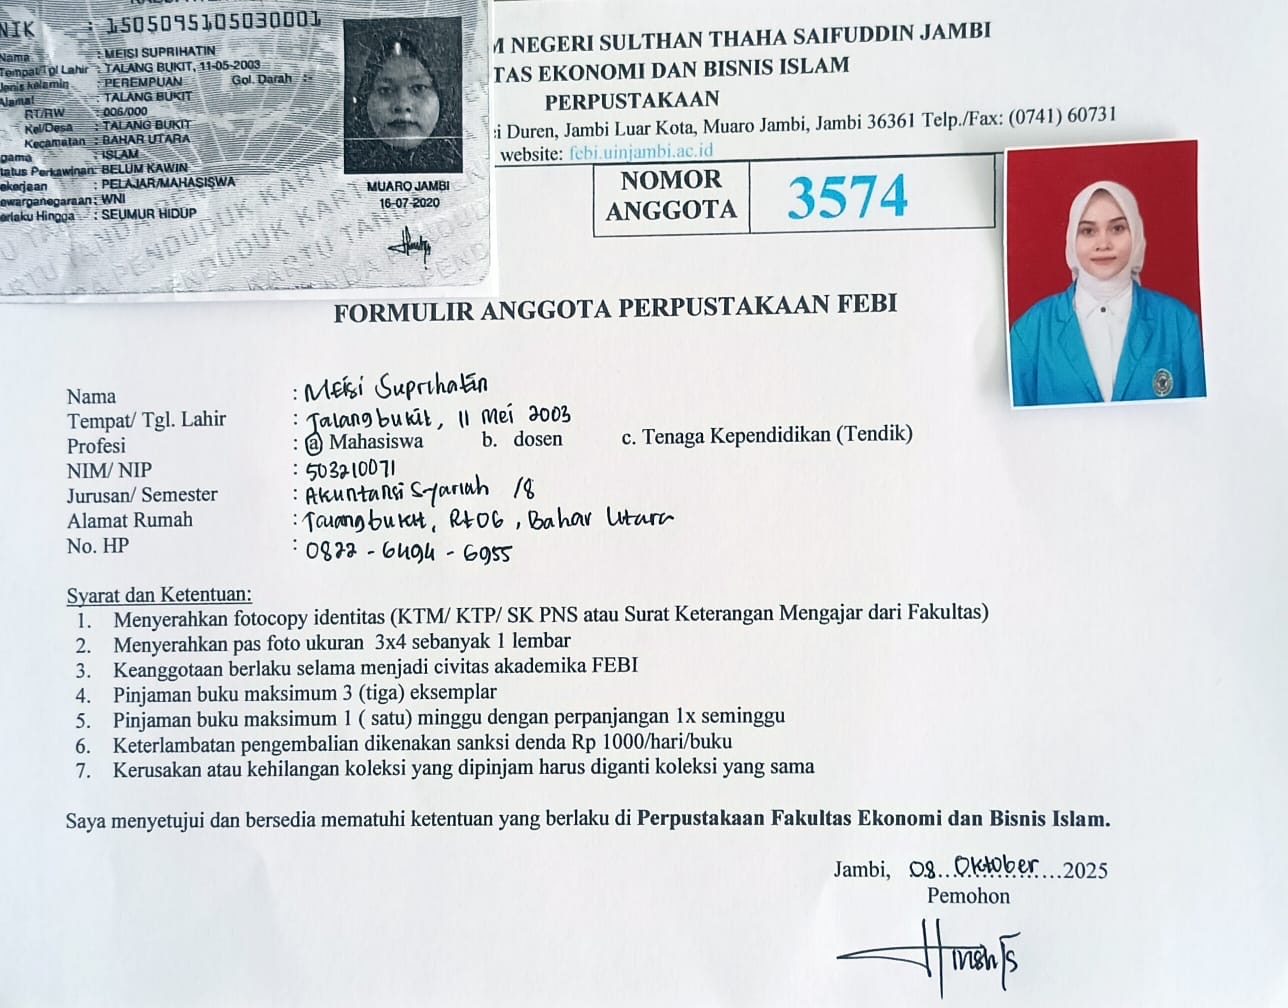 NIK : 1505095105030001
Nama : MEISI SUPRIHATIN
Tempat/Tgl Lahir : TALANG BUKIT, 11-05-2003
Jenis kelamin : PEREMPUAN Gol. Darah : -
Alamat : TALANG BUKIT
RT/RW : 006/000
Kel/Desa : TALANG BUKIT
Kecamatan : BAHAR UTARA
gama : ISLAM
tatus Perkawinan: BELUM KAWIN
ekerjaan : PELAJAR/MAHASISWA
ewarganegaraan: WNI
erlaku Hingga : SEUMUR HIDUP
MUARO JAMBI
16-07-2020
M NEGERI SULTHAN THAHA SAIFUDDIN JAMBI
TAS EKONOMI DAN BISNIS ISLAM
PERPUSTAKAAN
i Duren, Jambi Luar Kota, Muaro Jambi, Jambi 36361 Telp./Fax: (0741) 60731
website: febi.uinjambi.ac.id
NOMOR ANGGOTA 3574
FORMULIR ANGGOTA PERPUSTAKAAN FEBI
Nama : Meisi Suprihatin
Tempat/ Tgl. Lahir : Talangbukit, 11 Mei 2003
Profesi : a Mahasiswa b. dosen c. Tenaga Kependidikan (Tendik)
NIM/ NIP : 503210071
Jurusan/ Semester : Akuntansi Syariah /8
Alamat Rumah : Talangbukit, Rt06, Bahar Utara
No. HP : 0822 - 6494 - 6955
Syarat dan Ketentuan:
1. Menyerahkan fotocopy identitas (KTM/ KTP/ SK PNS atau Surat Keterangan Mengajar dari Fakultas)
2. Menyerahkan pas foto ukuran 3x4 sebanyak 1 lembar
3. Keanggotaan berlaku selama menjadi civitas akademika FEBI
4. Pinjaman buku maksimum 3 (tiga) eksemplar
5. Pinjaman buku maksimum 1 ( satu) minggu dengan perpanjangan 1x seminggu
6. Keterlambatan pengembalian dikenakan sanksi denda Rp 1000/hari/buku
7. Kerusakan atau kehilangan koleksi yang dipinjam harus diganti koleksi yang sama
Saya menyetujui dan bersedia mematuhi ketentuan yang berlaku di Perpustakaan Fakultas Ekonomi dan Bisnis Islam.
Jambi, 08 Oktober 2025
Pemohon